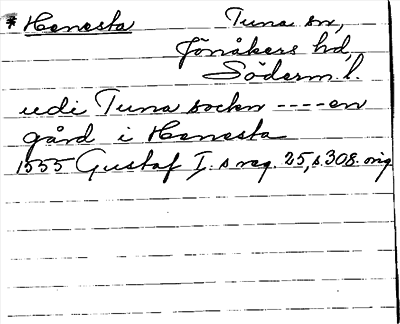 * Henesta Tuna sn,
Jönåkers hd,
Söderm. l.
udi Tuna sockn ---- en
gård i Henesta
1555 Gustaf I. s reg. 25, s. 308. orig